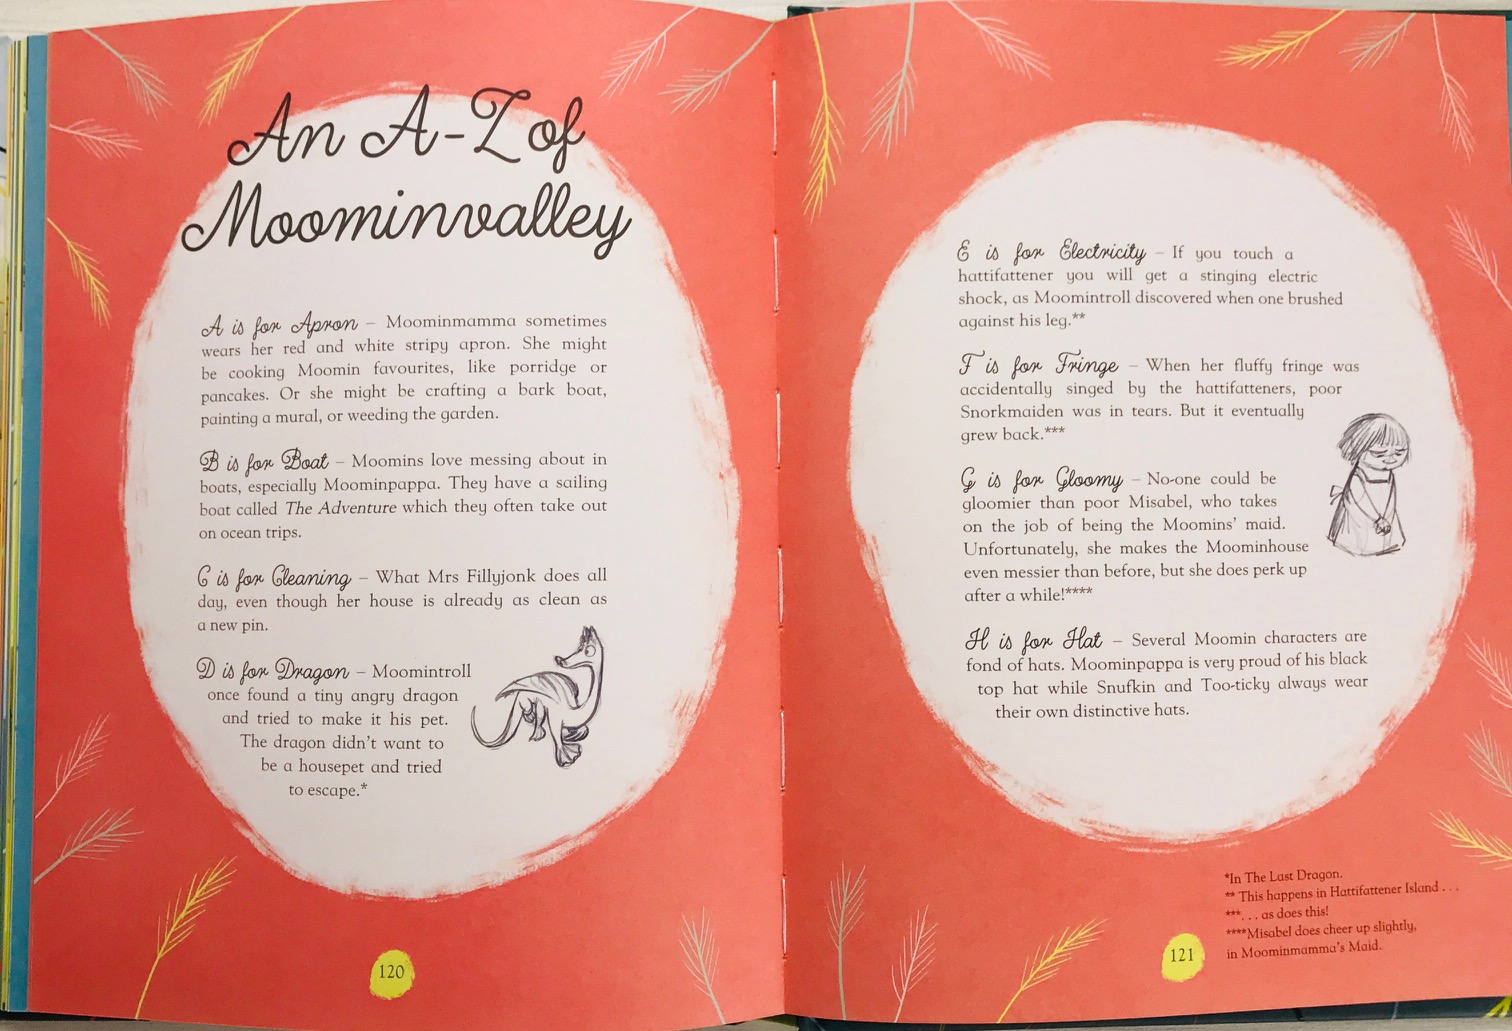 An A-Z of
Moominvalley
A is for Apron – Moominmamma sometimes
wears her red and white stripy apron. She might
be cooking Moomin favourites, like porridge or
pancakes. Or she might be crafting a bark boat,
painting a mural, or weeding the garden.
B is for Boat – Moomins love messing about in
boats, especially Moominpappa. They have a sailing
boat called The Adventure which they often take out
on ocean trips.
C is for Cleaning – What Mrs Fillyjonk does all
day, even though her house is already as clean as
a new pin.
D is for Dragon – Moomintroll
once found a tiny angry dragon
and tried to make it his pet.
The dragon didn't want to
be a housepet and tried
to escape.*
120
E is for Electricity – If you touch a
hattifattener you will get a stinging electric
shock, as Moomintroll discovered when one brushed
against his leg.**
F is for Fringe – When her fluffy fringe was
accidentally singed by the hattifatteners, poor
Snorkmaiden was in tears. But it eventually
grew back.***
G is for Gloomy – No-one could be
gloomier than poor Misabel, who takes
on the job of being the Moomins' maid.
Unfortunately, she makes the Moominhouse
even messier than before, but she does perk up
after a while!****
H is for Hat – Several Moomin characters are
fond of hats. Moominpappa is very proud of his black
top hat while Snufkin and Too-ticky always wear
their own distinctive hats.
*In The Last Dragon.
** This happens in Hattifattener Island . . .
***. . . as does this!
****Misabel does cheer up slightly,
in Moominmamma's Maid.
121